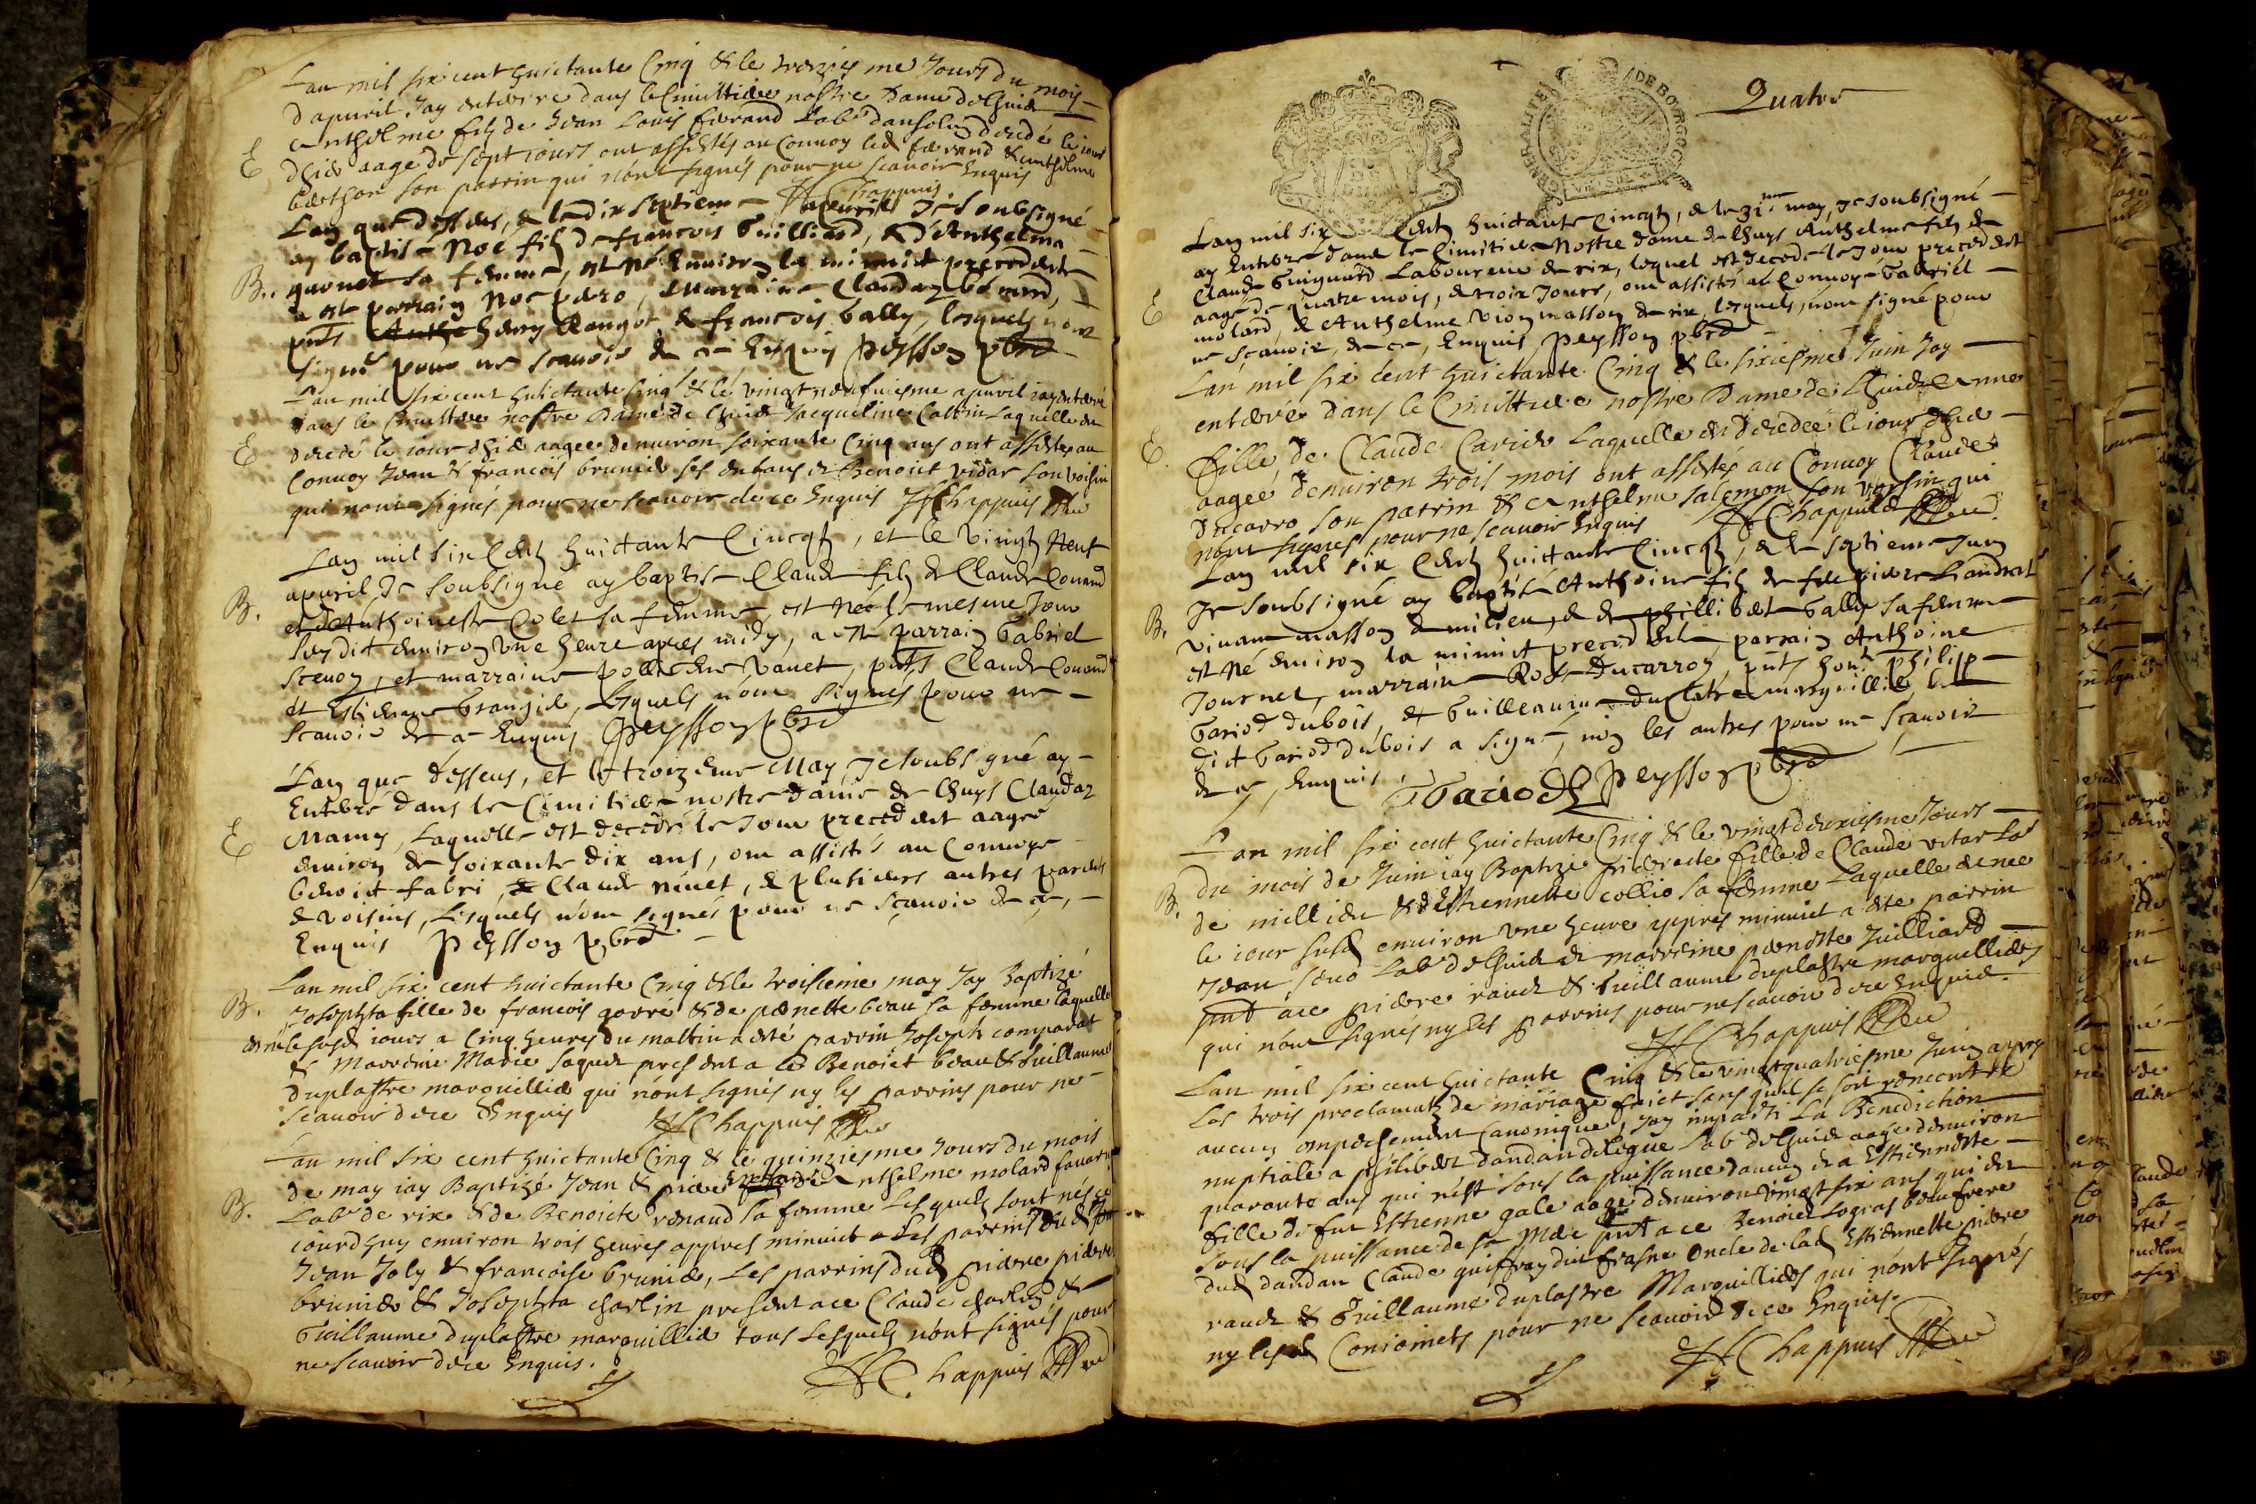 Lan mil six cent huictante Cinq & le treziesme Jours du mois
dapuril Jay enterre dans le Cimittiere nostre Dame de Lhuis
E
Anthelme filz de Jean Louis ferrand Lab.r danselin decedé le jour
dhier aage de sept jours ont assistés au Convoy led ferrand & Anthelme
berthon son parrin qui n'ont signés pour ne scavoir Enquis
HChappuis
Lan que dessus, & le dix septieme apuril Je Soubsigné
ay baptisé Noe filz de francois Guilliard, & d'Anthelma
B.
quonet sa femme, est né Environ la minuict precedente
a est parrain Noe pero, Marraine Claudaz berrard,
pnts henry Clanget & francois bally, lesquels n'ont
signé pour ne scavoir de ce Enquis Peysson pbre
Lan mil six cent huictante Cinq & le vingtneufuiesme apuril iay enterré
dans le Cimittiere nostre Dame de Lhuis Jacqueline Cattin Laquelle est
E
decede le iour dhier aagee denuiron soixante Cinq ans ont assistés au
Convoy Jean & francois brunier ses enfans et Benoict vidar son voisin
qui nont signés pour ne scavoir de ce Enquis HChappuis
Lan mil six Centz huictante Cincqz, et le vingtz Neuf
apuril Je soubsigné ay baptisé Claude filz de Claude Conand
B.
et d'Anthoinette Colet sa femme est né le mesme Jour
susdict environ une heure apres midy, a esté parrain Gabriel
Stevoz, et marraine pollicene vanet, pnts Claude Conand
et Estienne brangier, lesquels n'ont signés pour ne
scavoir de ce Enquis Peysson pbre
Lan que dessus, et le troizieme May, Je soubsigné ay
Enterre dans le Cimitiere nostre dame de Lhuys Claudaz
E
Mamy, laquelle est decedé le Jour precedent aagee
environ de soixante dix ans, ont assistés au Convoye
benoict fabri, & Claude ninet, & plusieurs autres parents
& voisins, Lesquels n'ont signés pour ne scavoir de ce,
Enquis Peysson pbre
Lan mil six cent huictante Cinq & le troisieme may Jay Baptizé
B.
Josephta fille de francois gorré & de pernette beau sa femme laquelle
est née le susd iours a Cinq heures du mattin a esté parrin Joseph comparat
& Marreine Marie Jaquet present a ce Benoict beau & Guillaume
duplastre marguillier qui n'ont signés ny les parrins pour ne
scavoir de ce Enquis HChappuis
Lan mil six cent huictante Cinq & le quinziesme Jours du mois
de may iay Baptizé Jean & piere Enfans d'Anthelme molard favary
B.
Lab.r de rix & de Benoicte renaud sa femme Lesquels sont nés ce
iourdhuy environ trois heures appres minuict & Les parrins dud Jean
Jean Joly & francoise brunier, Les parrins dud piere piere
brunier & Josephta charlin present a ce Claude charlin &
Guillaume duplastre marguillier tous Lesquels n'ont signés pour
ne scavoir de ce Enquis.
HChappuis
Quatre
GENERALITE DE BOURGOGNE
Lan mil six Centz huictante Cincqz, & le 31.me may, Je soubsigné
ay Enterre dans le Cimitiere Nostre dame de Lhuys Anthelme filz de
Claude Guiguard Laboureur de rix, lequel est decede le Jour precedent
E
aagé de quatre mois, & trois Jours, ont assistés au Convoye Gabriel
molard, & Anthelme vion masson de rix, lesquels, n'ont signé pour
ne scavoir, de ce, Enquis Peysson pbre
Lan mil six cent huictante Cinq & le sixiesme Juin Jay
enterré dans le Cimittiere nostre Dame de Lhuis Anne
E.
fille de Claude Carier Laquelle est decedée le iour dhier
aagée denuiron trois mois ont assistés au Convoy Claude
Ducarro son parrin & Anthelme Salemon son voysin qui
n'ont signés pour ne scavoir Enquis HChappuis
Lan mil six Centz huictante Cincqz, & le septieme Juin
Je soubsigné ay baptisé Anthoine filz de feu piere Liandrat
B.
vivant masson de milieu, & de phillibert bally sa femme
est né environ la minuict precedente parrain Anthoine
Tournel, marraine Rose Ducarroz pnts hon. Philipp
bariod dubois, & Guillaume duplatre marguillier, led
dict bariod dubois a signé, non les autres pour ne scavoir
de ce, Enquis. Bariod Peysson pbre
Lan mil six cent huictante Cinq & le vingtdeuxiesme Jours
du mois de Juin iay Baptizé fille de Claude vitar Lab
B.
de millieu & d'Estiennette collio sa femme Laquelle est née
le iour susd environ une heure appres minuict a esté parrin
Jean Lab.r de Lhuis et marreine pernette Juilliard
pnt a ce piere raude & Guillaume duplastre marguillier
qui n'ont signés ny les parrins pour ne scavoir de ce Enquis.
HChappuis
Lan mil six cent huictante Cinq & le vingtquatriesme Juin appres
Les trois proclamatz de mariage faict sans qu'il se soit rencontré
aucun empechement Canonique, Jay imparti La Benediction
nuptiale a philibert dandan Lab.r de Lhuis aage denuiron
quarante ans qui n'est sous la puissance d'aucun et a Estiennette
fille de feu Estienne gale aage denuiron vingt six ans qui est
sous la puissance de sa Mere pnt a ce Benoict Logras beaufrere
dud dandan Claude guiffray dit frasne Oncle de lad Estiennette piere
raude & Guillaume duplastre Marguillier qui n'ont signés
ny lesd Conioincts pour ne scavoir de ce Enquis.
HChappuis